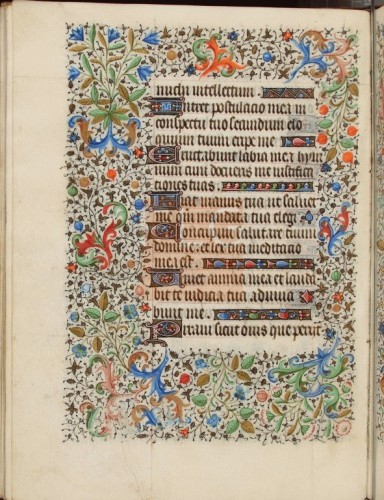 michi intellectum.
Intret postulacio mea in
conspectu tuo secundum elo
uium tuum eripe me
Eructabunt labia mea hym
num cum docueris me iustifica
tiones tuas.
Fiat manus tua ut saluet
me qm̄ mandata tua elegi
Concupiui salutare tuum
domine et lex tua meditacio
mea est.
Uiuet anima mea et laudа
bit te iudicia tua adiuua
bunt me.
Erraui sicut ouis que periit